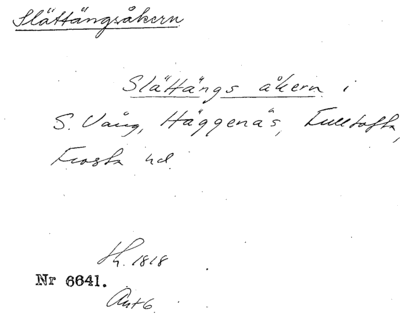 Slättängsåkern
Slättängs åkern i
S. Vång, Häggenäs, Fulltofta,
Frosta hd.
H. 1818
Nr 6641.
Ant 6.